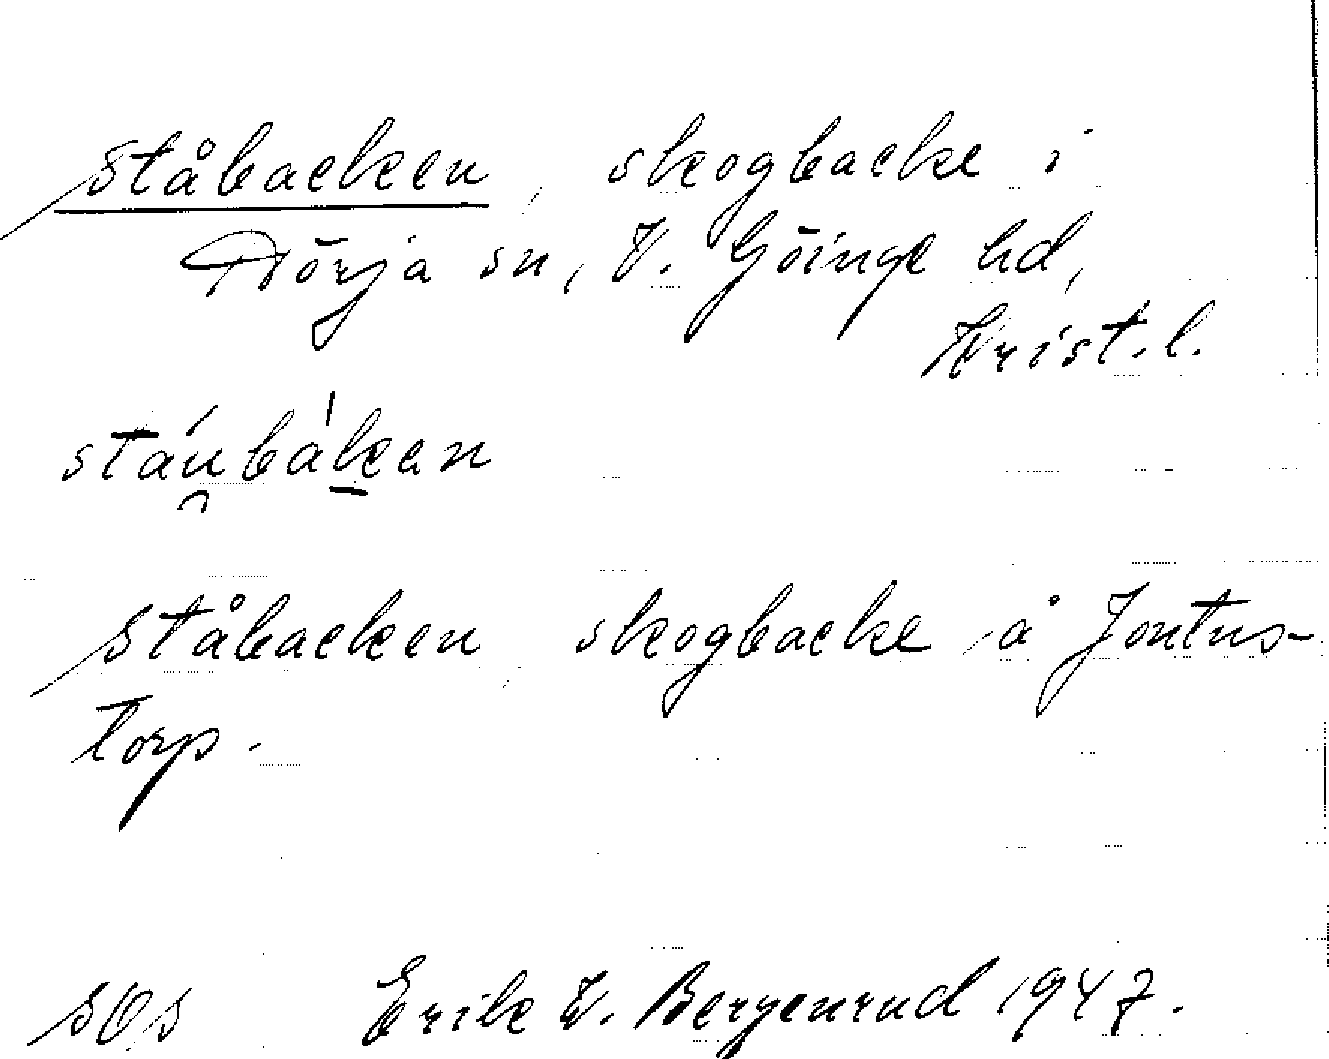 Ståbacken, skogbacke i
Nörja sn, V. Göinge hd,
Krist. l.
stáubàkan
Ståbacken, skogbacke å Jontus-
torp.
SOs Erik V. Bergenrud 1947.